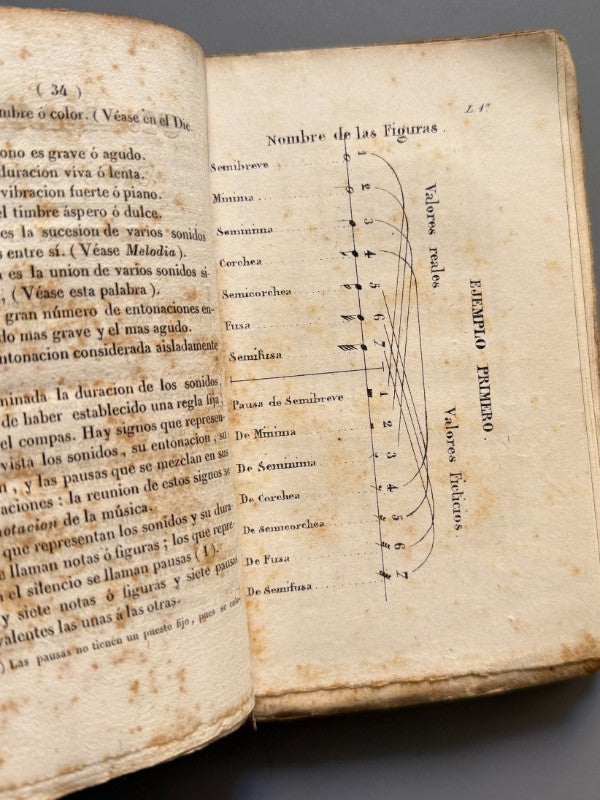 ( 34 )
mbre ó color. (Véase en el Dic.
ono es grave ó agudo.
duracion viva ó lenta.
vibracion fuerte ó piano.
el timbre áspero ó dulce.
es la sucesion de varios sonidos
s entre sí. (Véase Melodia).
a es la union de varios sonidos si-
, (Véase esta palabra).
gran número de entonaciones en-
do mas grave y el mas agudo.
entonacion considerada aisladamente
minada la duracion de los sonidos,
de haber establecido una regla fija,
el compas. Hay signos que represen-
vista los sonidos, su entonacion, su
n, y las pausas que se mezclan en sus
aciones: la reunion de estos signos se
notacion de la música.
que representan los sonidos y su dura-
e llaman notas ó figuras; los que repre-
n el silencio se llaman pausas (1).
y siete notas ó figuras y siete pausas
valentes las unas á las otras.
) Las pausas no tienen un puesto fijo, pues se
L. 1ª
Nombre de las Figuras.
Semibreve
Minima
Seminima
Corchea
Semicorchea
Fusa
Semifusa
Pausa de Semibreve
De Minima
De Seminima
De Corchea
De Semicorchea
De Fusa
De Semifusa
1
2
3
4
5
6
7
1
2
3
4
5
6
7
Valores reales
Valores Ficticios
EJEMPLO PRIMERO.